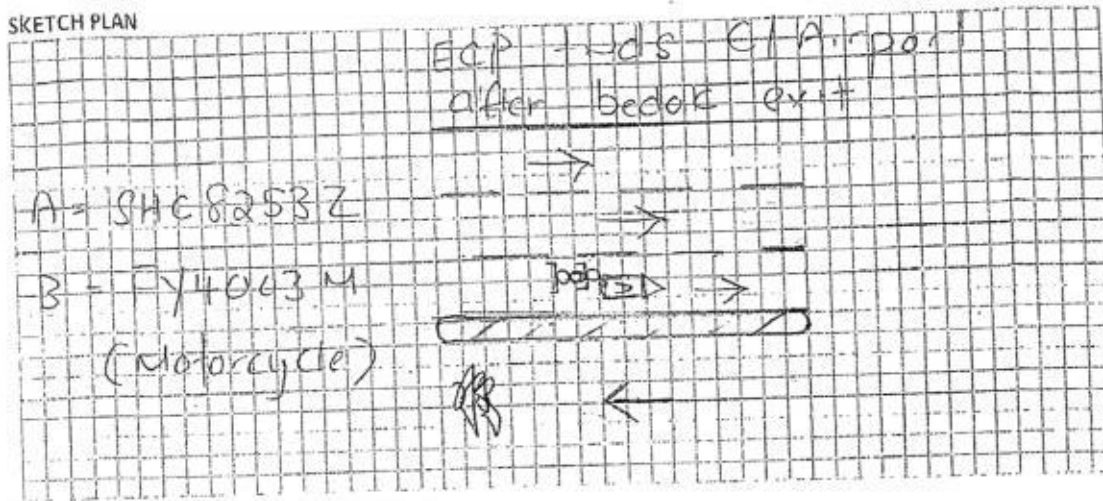 SKETCH PLAN
ECP C/Airport
after bedok exit
A = SHC8253Z
B - FY4063M
(Motorcycle)